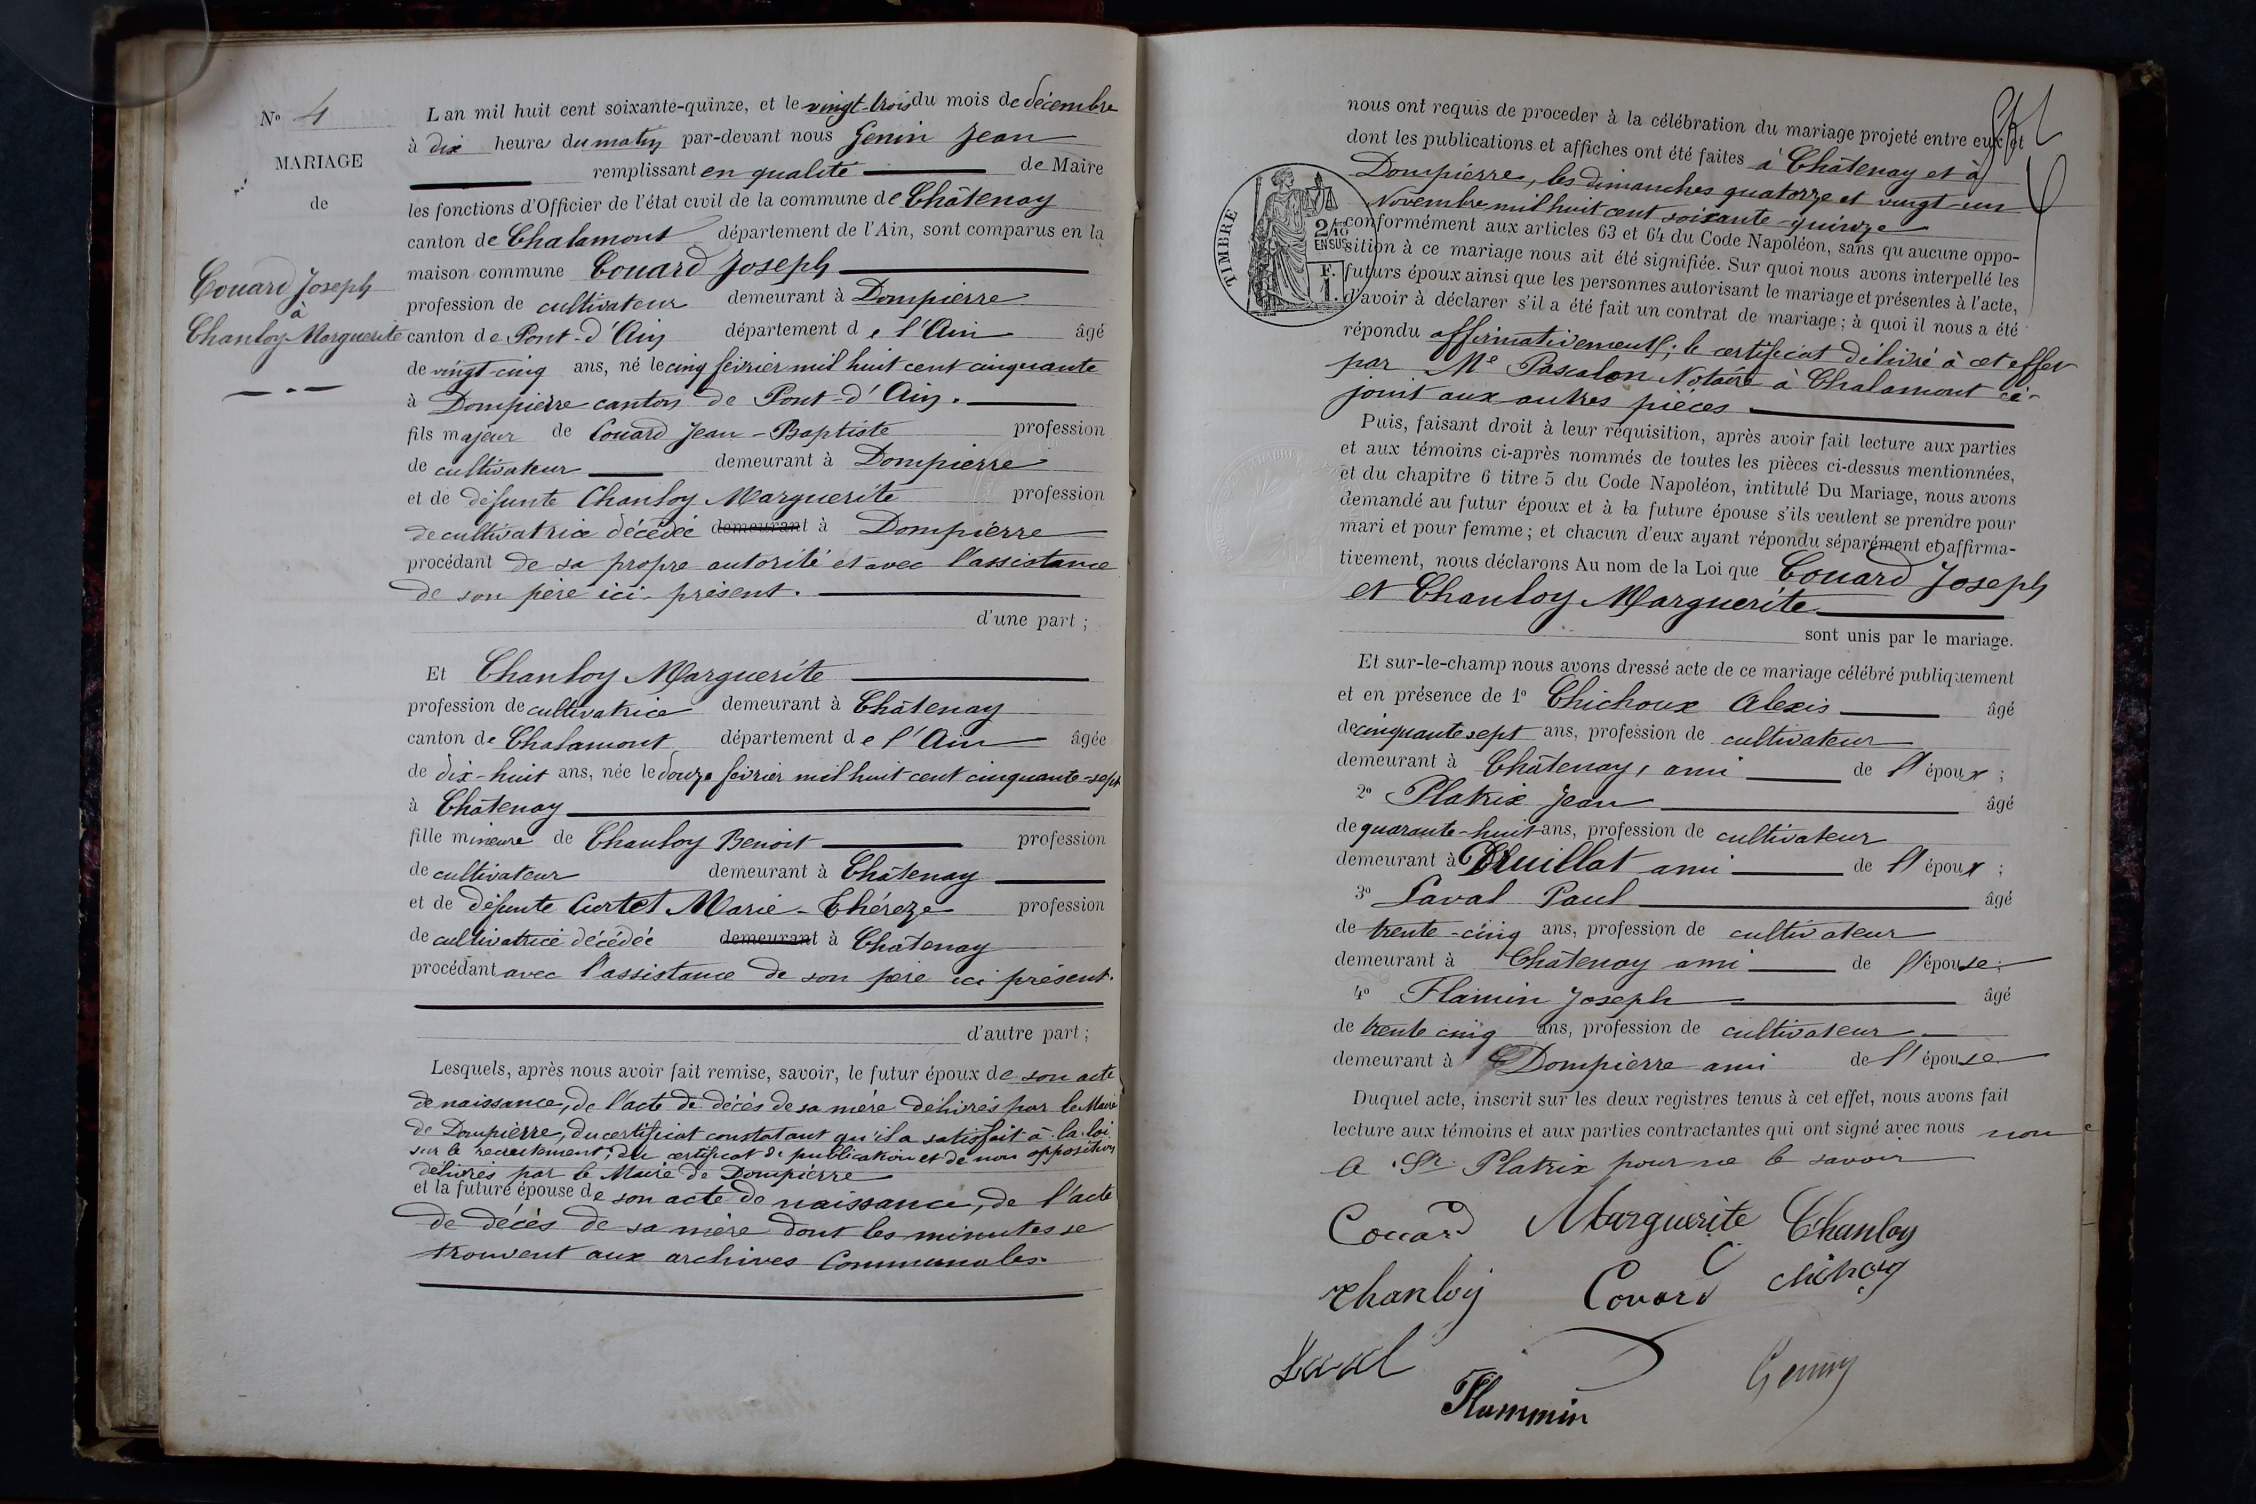 Nº 4
MARIAGE
de
Couard Joseph
à
Chanloy Marguerite
L an mil huit cent soixante-quinze, et le vingt-trois du mois de décembre
à dix heures du matin par-devant nous Genin Jean
remplissant en qualité de Maire
les fonctions d'Officier de l'état civil de la commune de Châtenay
canton de Chalamont département de l'Ain, sont comparus en la
maison commune Couard Joseph
profession de cultivateur demeurant à Dompierre
canton de Pont-d'Ain département de l'Ain âgé
de vingt-cinq ans, né le cinq février mil huit cent cinquante
à Dompierre canton de Pont-d'Ain.
fils majeur de Couard Jean-Baptiste profession
de cultivateur demeurant à Dompierre
et de défunte Chanloy Marguerite profession
de cultivatrice décédée demeurant à Dompierre
procédant de sa propre autorité et avec l'assistance
de son père ici-présent.
d'une part ;
Et Chanloy Marguerite
profession de cultivatrice demeurant à Châtenay
canton de Chalamont département de l'Ain âgée
de dix-huit ans, née le douze février mil huit cent cinquante-sept
à Châtenay
fille mineure de Chanloy Benoit profession
de cultivateur demeurant à Châtenay
et de défunte Curtet Marie-Théreze profession
de cultivatrice décédée demeurant à Châtenay
procédant avec l'assistance de son père ici présent.
d'autre part ;
Lesquels, après nous avoir fait remise, savoir, le futur époux de son acte
de naissance, de l'acte de décès de sa mère délivrés par le Maire
de Dompierre, du certificat constatant qu'il a satisfait à la loi
sur le recrutement; du certificat de publication et de non opposition
délivrés par le Maire de Dompierre
et la future épouse de son acte de naissance, de l'acte
de décès de sa mère dont les minutes se
trouvent aux archives Communales.
nous ont requis de proceder à la célébration du mariage projeté entre eux et
dont les publications et affiches ont été faites à Châtenay et à
Dompierre, les dimanches quatorze et vingt-un
Novembre mil huit cent soixante-quinze
conformément aux articles 63 et 64 du Code Napoléon, sans qu aucune oppo-
sition à ce mariage nous ait été signifiée. Sur quoi nous avons interpellé les
futurs époux ainsi que les personnes autorisant le mariage et présentes à l'acte,
d'avoir à déclarer s'il a été fait un contrat de mariage ; à quoi il nous a été
répondu affirmativement; le certificat délivré à cet effet
par Me Pascalon Notaire à Chalamont ci-
joint aux autres pièces.
TIMBRE
2/10
EN SUS
F.
1.
Puis, faisant droit à leur réquisition, après avoir fait lecture aux parties
et aux témoins ci-après nommés de toutes les pièces ci-dessus mentionnées,
et du chapitre 6 titre 5 du Code Napoléon, intitulé Du Mariage, nous avons
demandé au futur époux et à la future épouse s'ils veulent se prendre pour
mari et pour femme ; et chacun d'eux ayant répondu séparément et affirma-
tivement, nous déclarons Au nom de la Loi que Couard Joseph
et Chanloy Marguerite
sont unis par le mariage.
Et sur-le-champ nous avons dressé acte de ce mariage célébré publiquement
et en présence de 1º Chichoux Alexis âgé
de cinquante sept ans, profession de cultivateur
demeurant à Châtenay, ami de l'époux ;
2º Platrix Jean âgé
de quarante-huit ans, profession de cultivateur
demeurant à Druillat ami de l'époux ;
3º Laval Paul âgé
de trente-cinq ans, profession de cultivateur
demeurant à Châtenay ami de l'épouse ;
4º Flamin Joseph âgé
de trente cinq ans, profession de cultivateur
demeurant à Dompierre ami de l'épouse
Duquel acte, inscrit sur les deux registres tenus à cet effet, nous avons fait
lecture aux témoins et aux parties contractantes qui ont signé avec nous non
le Sr. Platrix pour ne le savoir
Couard Marguerite Chanloy
Chanloy Couard chichoux
Laval
Flammin
Genin